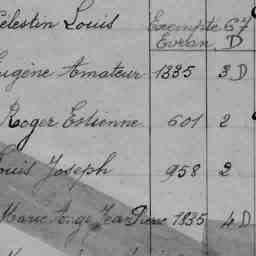 Célestin Louis Exempté 67
Evran D
Eugène Amateur 1835 3 D
Roger Estienne 601 2
Louis Joseph 958 2
Marie Ange Jean Pierre 1835 4 D